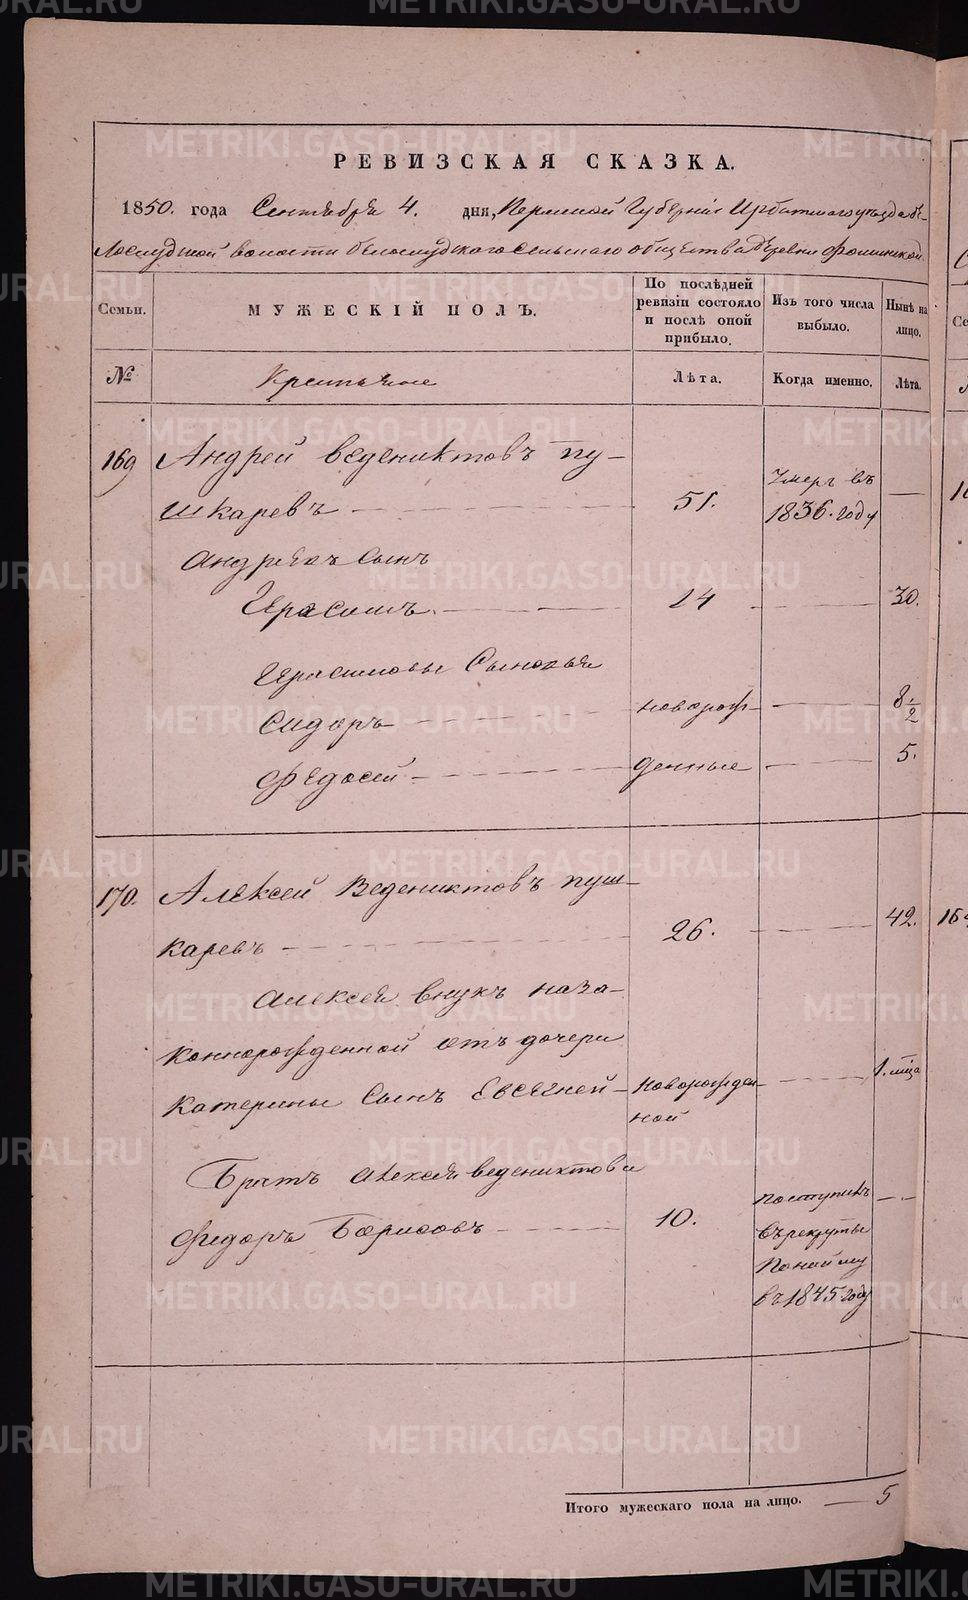 РЕВИЗСКАЯ СКАЗКА.
1850. года Сентября 4. дня, Пермской Губернии Ирбитскаго уезда бе-
лослудской волости белослудского сельскаго общества деревни Фоминской
Семьи.
МУЖЕСКІЙ ПОЛЪ.
По послѣдней ревизіи состояло и послѣ оной прибыло.
Изъ того числа выбыло.
Нынѣ на лицо.
№
Крестьяне
Лѣта.
Когда именно.
Лѣта.
169 Андрей ведениктовъ пу-
шкаревъ 51. Умеръ въ 1836. году
Андреевъ сынъ
Герасимъ. 14 30.
Герасимовы Сыновья
Сидоръ новорож- 8 1/2
Федосей денные 5.
170. Алексей Ведениктовъ пуш-
каревъ 26. 42.
Алексея внукъ неза-
коннорожденной отъ дочери
катерины Сынъ Евсегней новорожден- 1. мца
ной
Братъ Алексея ведениктова
Федоръ Борисовъ 10. поступилъ
в рекруты
по найму
въ 1845 году
Итого мужескаго пола на лицо. 5
METRIKI.GASO-URAL.RU